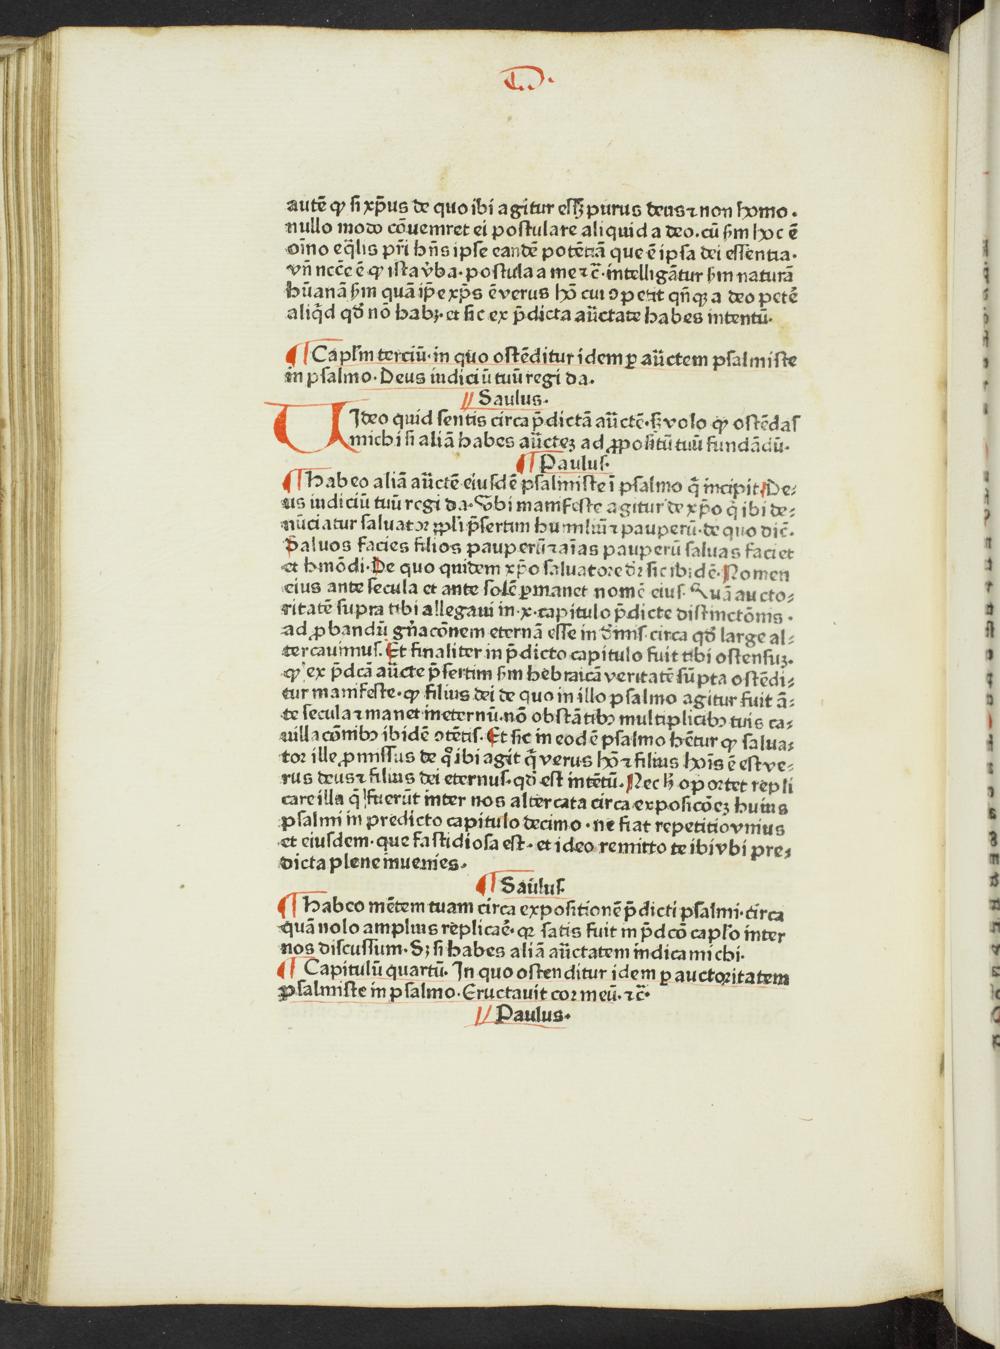 autē qꝫ si xp̄us de quo ibi agitur eēt purus deus ⁊ non homo.
nullo modo cōueniret ei postulare aliquid a deo. cū hm̄ hoc ē
oīno eq̄lis pr̄i hn̄s ipse eandē potētiā que ē ipsa dei essentia.
vn̄ nccē ē qꝫ ista v̄ba. postula a me ⁊c̄. intelligātur hm̄ naturā
hūanā hm̄ quā ip̄e xp̄s ē verus hō cui ↄpetit qn̄qꝫ a deo petē
aliq̄d qd̄ nō habꝫ. et sic ex p̄dicta aūctate habes intentū.
¶ Capl̄m terciū. in quo ostēditur idem ꝑ aūctem psalmiste
in psalmo. Deus iudiciū tuū regi da.
// Saulus.
Uideo quid sentis circa p̄dictā aūctē. sꝫ volo qꝫ ostēdas
michi si aliā habes aūcteꝫ ad ꝓpositū tuū fundādū.
¶ Paulus.
¶ Habeo aliā aūctē eiusdē psalmiste ī psalmo q̄ incipit. De⸗
us iudiciū tuū regi da. Vbi manifeste agitur de xp̄o q̄ ibi de⸗
nūciatur saluator ppl̄i p̄sertim humiliū ⁊ pauperū. de quo dic̄.
Saluos facies filios pauperū ⁊ aīas pauperū saluas faciet
et hmōdi. De quo quidem xp̄o saluatore dr̄ sic ibidē. Nomen
eius ante secula et ante solē ꝑmanet nomē eius. Quā aucto⸗
ritatē supra tibi allegaui in .x. capitulo p̄dicte distinctōnis.
ad ꝓbandū gn̄acōnem eternā esse in diuīs. circa qd̄ large al⸗
tercauimus. Et finaliter in p̄dicto capitulo fuit tibi ostensuꝫ.
qꝫ ex p̄dcā aūcte p̄sertim hm̄ hebraicā veritatē sūpta ostēdi⸗
tur manifeste. qꝫ filius dei de quo in illo psalmo agitur fuit ā⸗
te secula ⁊ manet ineternū. nō obstātibꝫ multiplicibꝫ tuis ca⸗
uillacōnibꝫ ibidē ↄtētis. Et sic in eodē psalmo hētur qꝫ salua⸗
tor ille ꝓmissus de q̊ ibi agit q̄ verus hō ⁊ filius hoīs ē est ve⸗
rus deus ⁊ filius dei eternus. qd̄ est intētū. Nec h̄ oportet repli
care illa q̄ fuerūt inter nos altercata circa exposicōeꝫ huius
psalmi in predicto capitulo decimo. ne fiat repetitio vnius
et eiusdem. que fastidiosa est. et ideo remitto te ibi vbi pre⸗
dicta plene inuenies.
¶ Saulus.
¶ Habeo mētem tuam circa expositionē p̄dicti psalmi. circa
quā nolo amplius replicare. qꝛ satis fuit in p̄dcō capl̄o inter
nos discussum. Sꝫ si habes aliā aūctatem indica michi.
¶ Capitulū quartū. In quo ostenditur idem ꝑ auctoritatem
psalmiste in psalmo. Eructauit cor meū. ⁊c̄.
// Paulus.